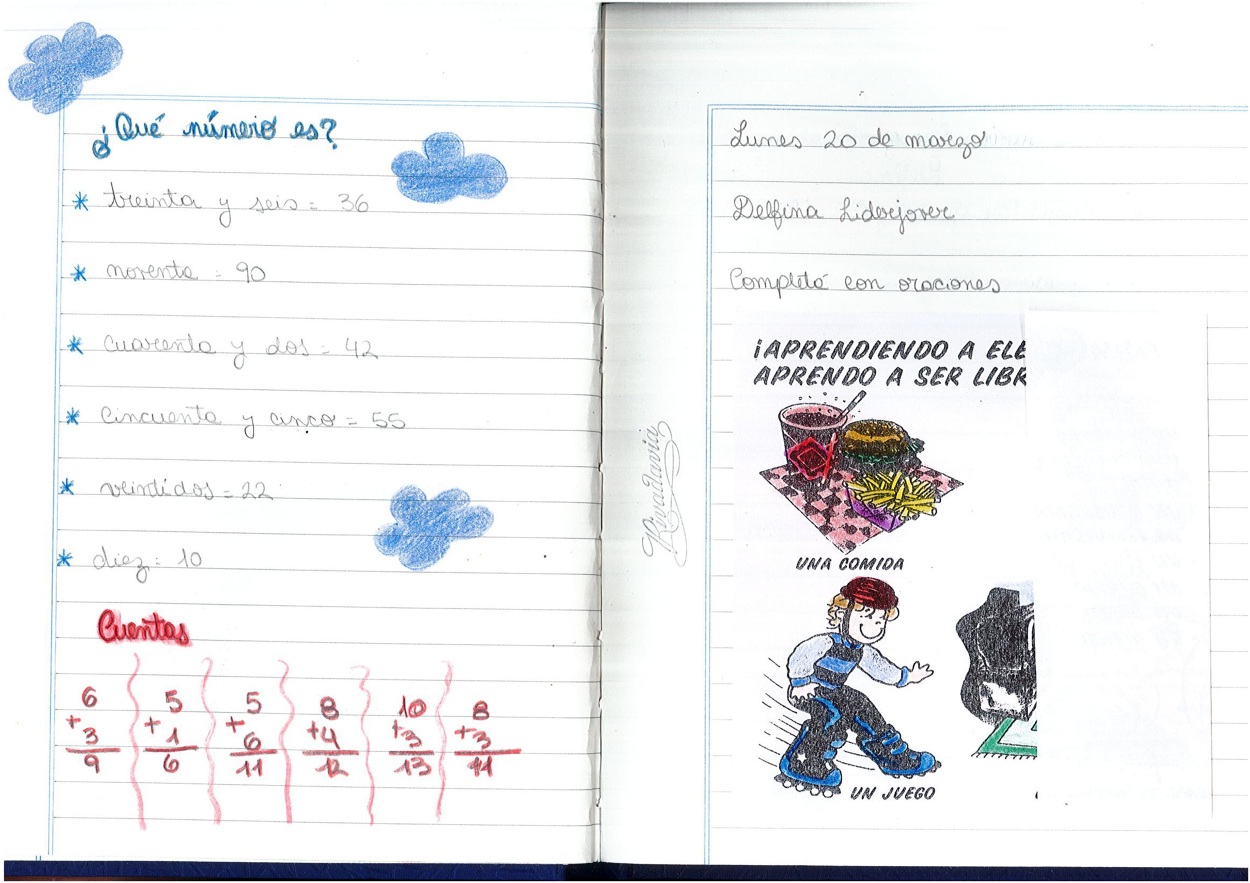 ¿Qué número es?
* treinta y seis = 36
* noventa = 90
* cuarenta y dos = 42
* cincuenta y cinco = 55
* veintidos = 22
* diez = 10
Cuentas
6 5 5 8 10 8
+ + + + + +
3 1 6 4 3 3
9 6 11 12 13 11
Rivadavia
Lunes 20 de marzo
Delfina
Completá con oraciones
¡APRENDIENDO A ELE
APRENDO A SER LIBR
UNA COMIDA
UN JUEGO